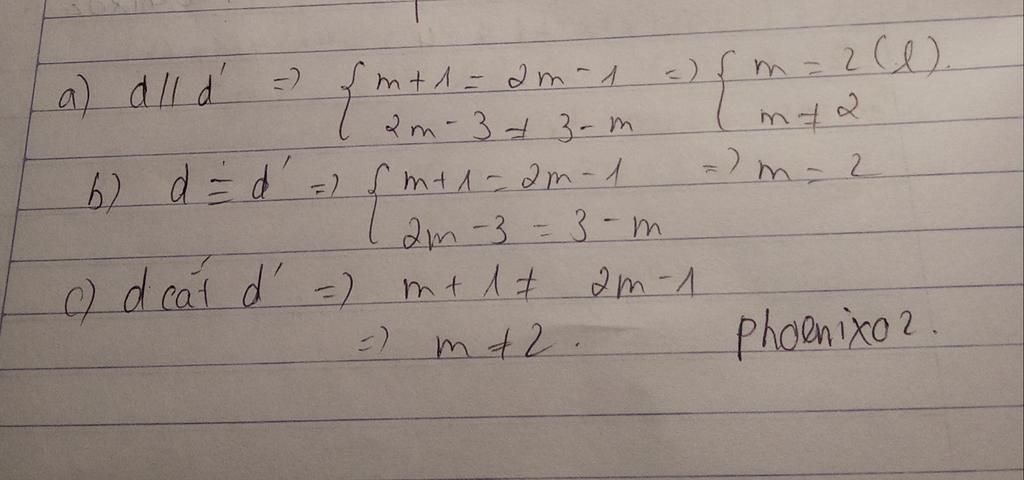 a) d // d' => { m + 1 = 2m - 1 => { m = 2 (l).
2m - 3 ≠ 3 - m m ≠ 2
b) d ≡ d' => { m + 1 = 2m - 1 => m = 2
2m - 3 = 3 - m
c) d cắt d' => m + 1 ≠ 2m - 1
=> m ≠ 2.
phoenix02.